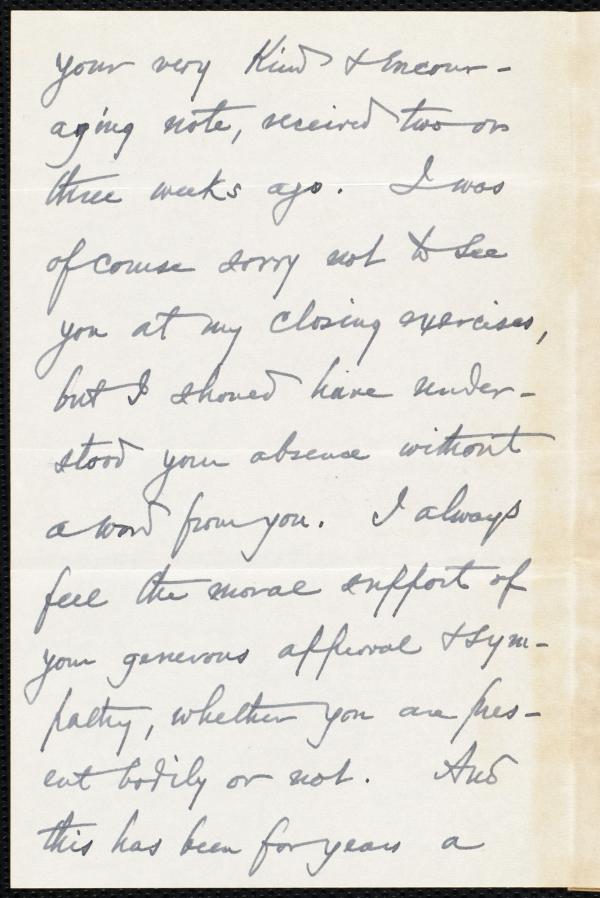 your very kind & encour-
aging note, received two or
three weeks ago. I was
of course sorry not to see
you at my closing exercises,
but I should have under-
stood your absence without
a word from you. I always
feel the moral support of
your generous approval & sym-
pathy, whether you are pres-
ent bodily or not. And
this has been for years a